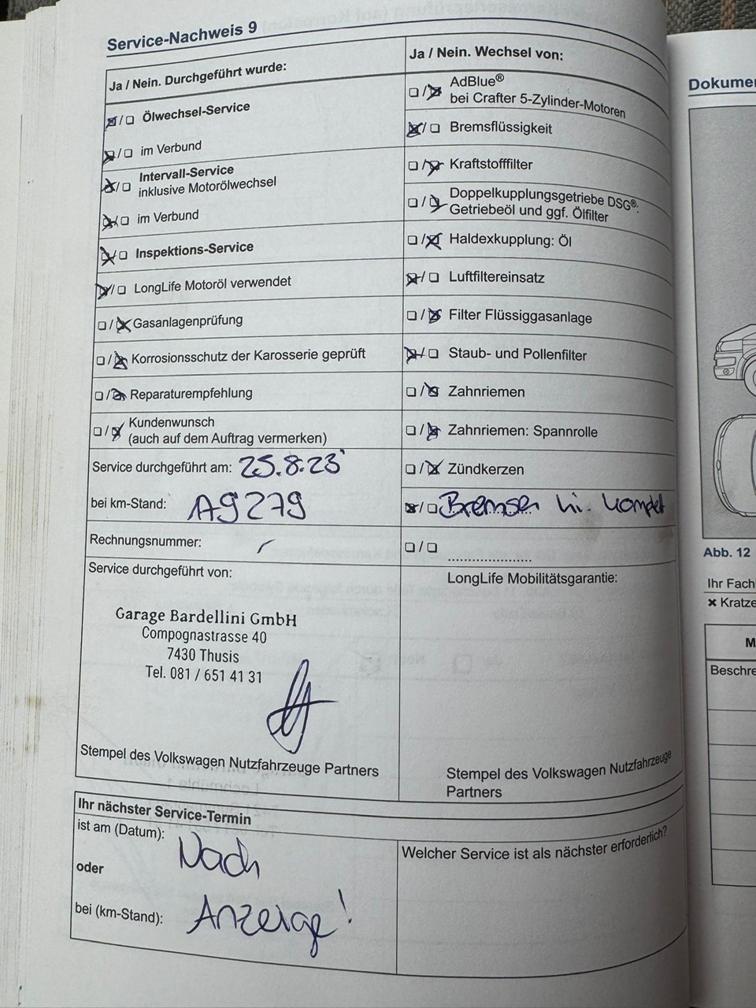 Service-Nachweis 9
Ja / Nein. Durchgeführt wurde:
Ölwechsel-Service
im Verbund
Intervall-Service
inklusive Motorölwechsel
im Verbund
Inspektions-Service
LongLife Motoröl verwendet
Gasanlagenprüfung
Korrosionsschutz der Karosserie geprüft
Reparaturempfehlung
Kundenwunsch
(auch auf dem Auftrag vermerken)
Service durchgeführt am: 25.8.23
bei km-Stand: 19279
Rechnungsnummer:
Service durchgeführt von:
Garage Bardellini GmbH
Compognastrasse 40
7430 Thusis
Tel. 081 / 651 41 31
Stempel des Volkswagen Nutzfahrzeuge Partners
Ja / Nein. Wechsel von:
AdBlue®
bei Crafter 5-Zylinder-Motoren
Bremsflüssigkeit
Kraftstofffilter
Doppelkupplungsgetriebe DSG®:
Getriebeöl und ggf. Ölfilter
Haldexkupplung: Öl
Luftfiltereinsatz
Filter Flüssiggasanlage
Staub- und Pollenfilter
Zahnriemen
Zahnriemen: Spannrolle
Zündkerzen
Bremsen hi. komplet
LongLife Mobilitätsgarantie:
Stempel des Volkswagen Nutzfahrzeuge
Partners
Ihr nächster Service-Termin
ist am (Datum): Nach
oder
bei (km-Stand): Anzeige!
Welcher Service ist als nächster erforderlich?
Dokumen
Abb. 12
Ihr Fach
× Kratze
M
Beschre